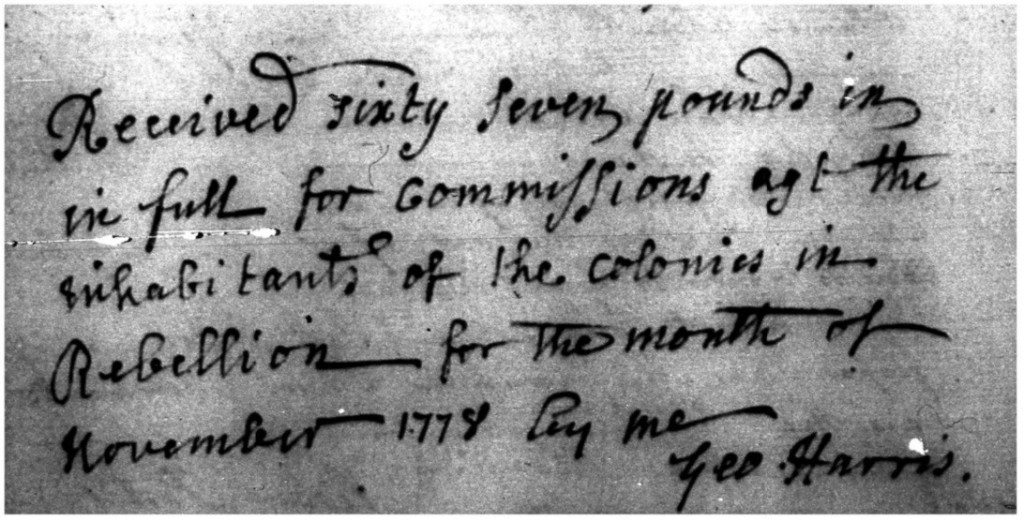 Received sixty seven pounds in
in full for commissions agt the
inhabitants of the colonies in
Rebellion for the month of
November 1778 by me
Geo Harris.